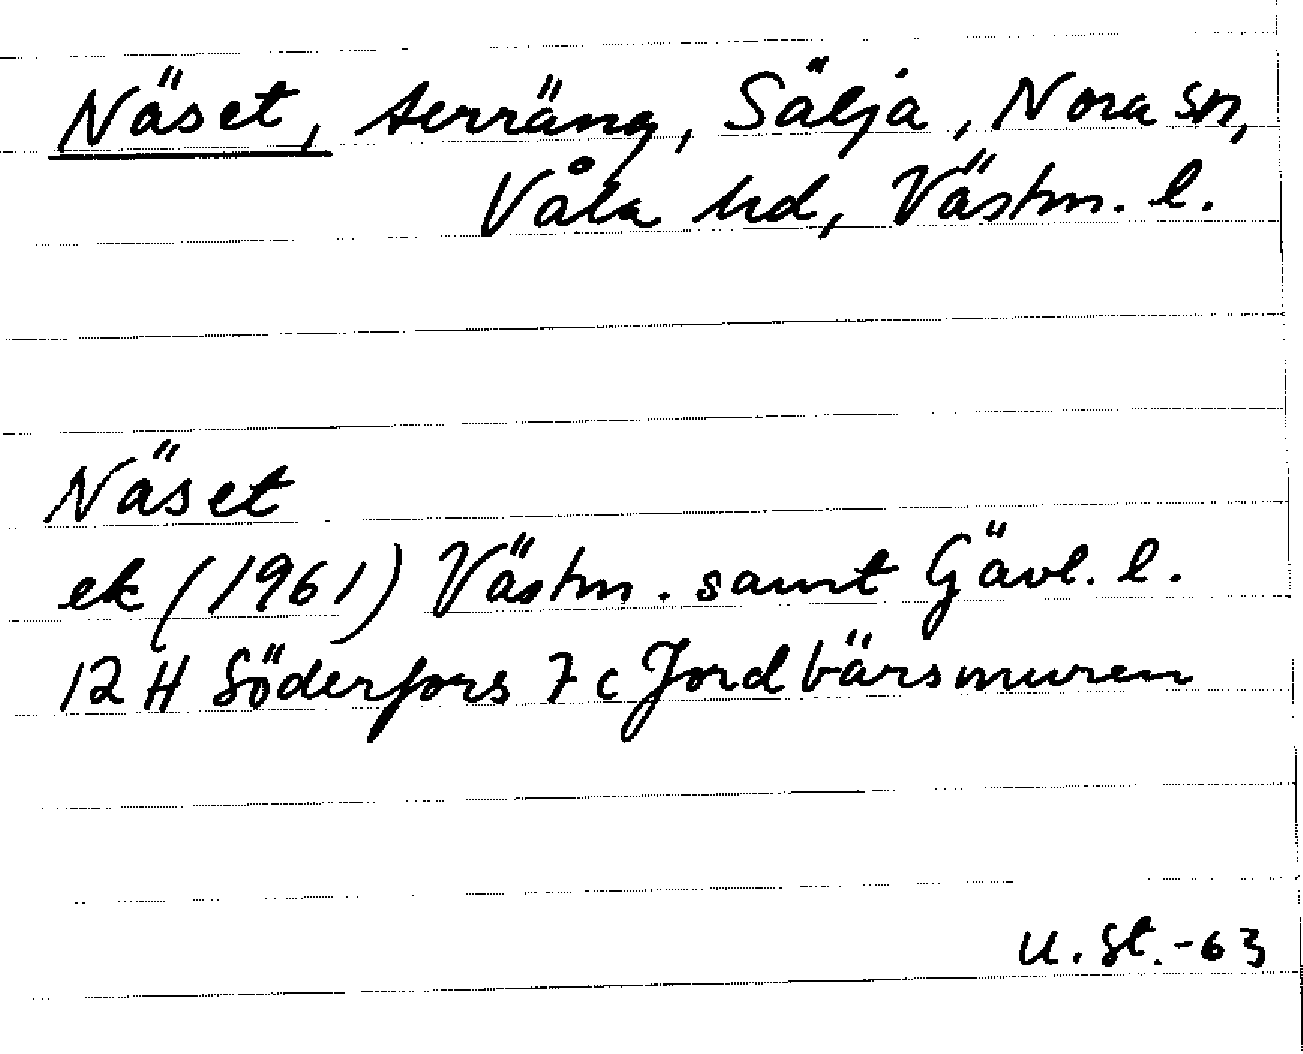 Näset, terräng, Sälja, Nora sn,
Våla hd, Västm. l.
Näset
ek (1961) Västm. samt Gävl. l.
12 H Söderfors 7 c Jordbärsmuren
U. St. -63